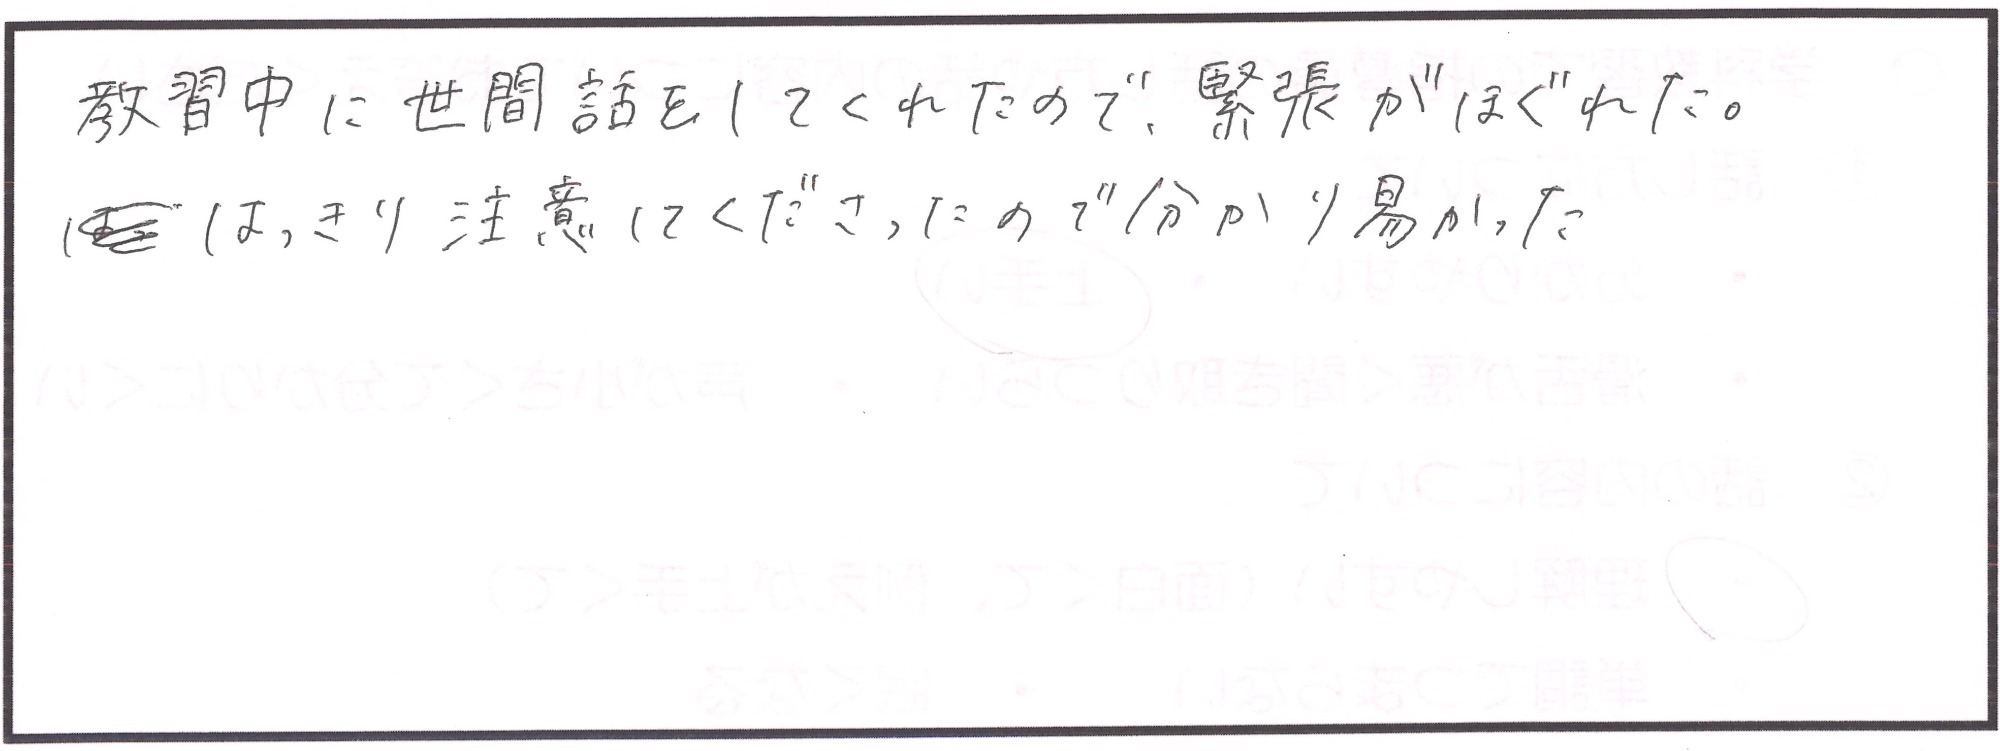 教習中に世間話をしてくれたので、緊張がほぐれた。
はっきり注意してくださったので分かり易かった